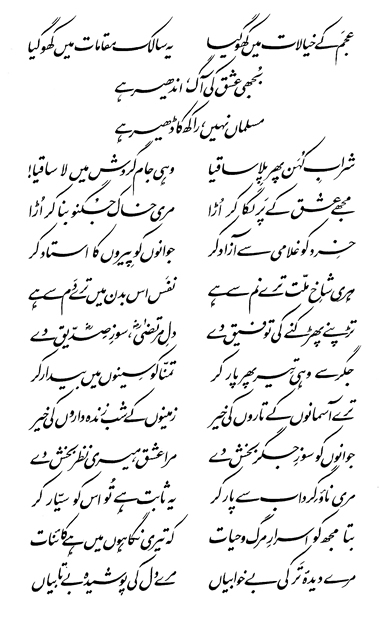 عجم کے خیالات میں کھو گیا یہ سالک مقامات میں کھو گیا
بجھی عشق کی آگ، اندھیر ہے
مسلماں نہیں، راکھ کا ڈھیر ہے
شراب کہن پھر پلا ساقیا وہی جام گردش میں لا ساقیا!
مجھے عشق کے پر لگا کر اڑا مری خاک جگنو بنا کر اڑا
خرد کو غلامی سے آزاد کر جوانوں کو پیروں کا استاد کر
ہری شاخ ملت ترے نم سے ہے نفس اس بدن میں ترے دم سے ہے
تڑپنے پھڑکنے کی توفیق دے دل مرتضیٰؓ، سوز صدیقؓ دے
جگر سے وہی تیر پھر پار کر تمنا کو سینوں میں بیدار کر
ترے آسمانوں کے تاروں کی خیر زمینوں کے شب زندہ داروں کی خیر
جوانوں کو سوز جگر بخش دے مرا عشق، میری نظر بخش دے
مری ناؤ گرداب سے پار کر یہ ثابت ہے تو اس کو سیار کر
بتا مجھ کو اسرار مرگ و حیات کہ تیری نگاہوں میں ہے کائنات
مرے دیدۂ تر کی بے خوابیاں مرے دل کی پوشیدہ بے تابیاں